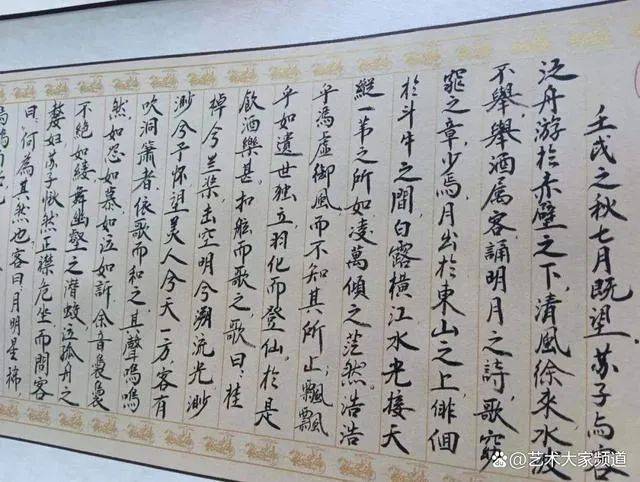 壬戌之秋七月既望,苏子与客
泛舟游於赤壁之下,清風徐来,水波
不舉,舉酒属客,誦明月之詩,歌窈
窕之章,少焉,月出於東山之上,徘徊
於斗牛之間,白露橫江,水光接天
縱一苇之所如,凌萬傾之茫然,浩浩
乎馮虚御風而不知其所止;飄飄
乎如遗世独立,羽化而登仙。於是
飲酒樂甚,扣舷而歌之。歌曰:桂
棹兮兰桨,击空明兮溯流光,渺
渺兮予怀,望美人兮天一方,客有
吹洞簫者,依歌而和之,其聲嗚嗚
然,如怨如慕,如泣如訴,余音裊裊
不絕如縷,舞幽壑之潜蛟,泣孤舟之
嫠妇。苏子愀然,正襟危坐而問客
曰:何為其然也?客曰:月明星稀,
艺术大家频道